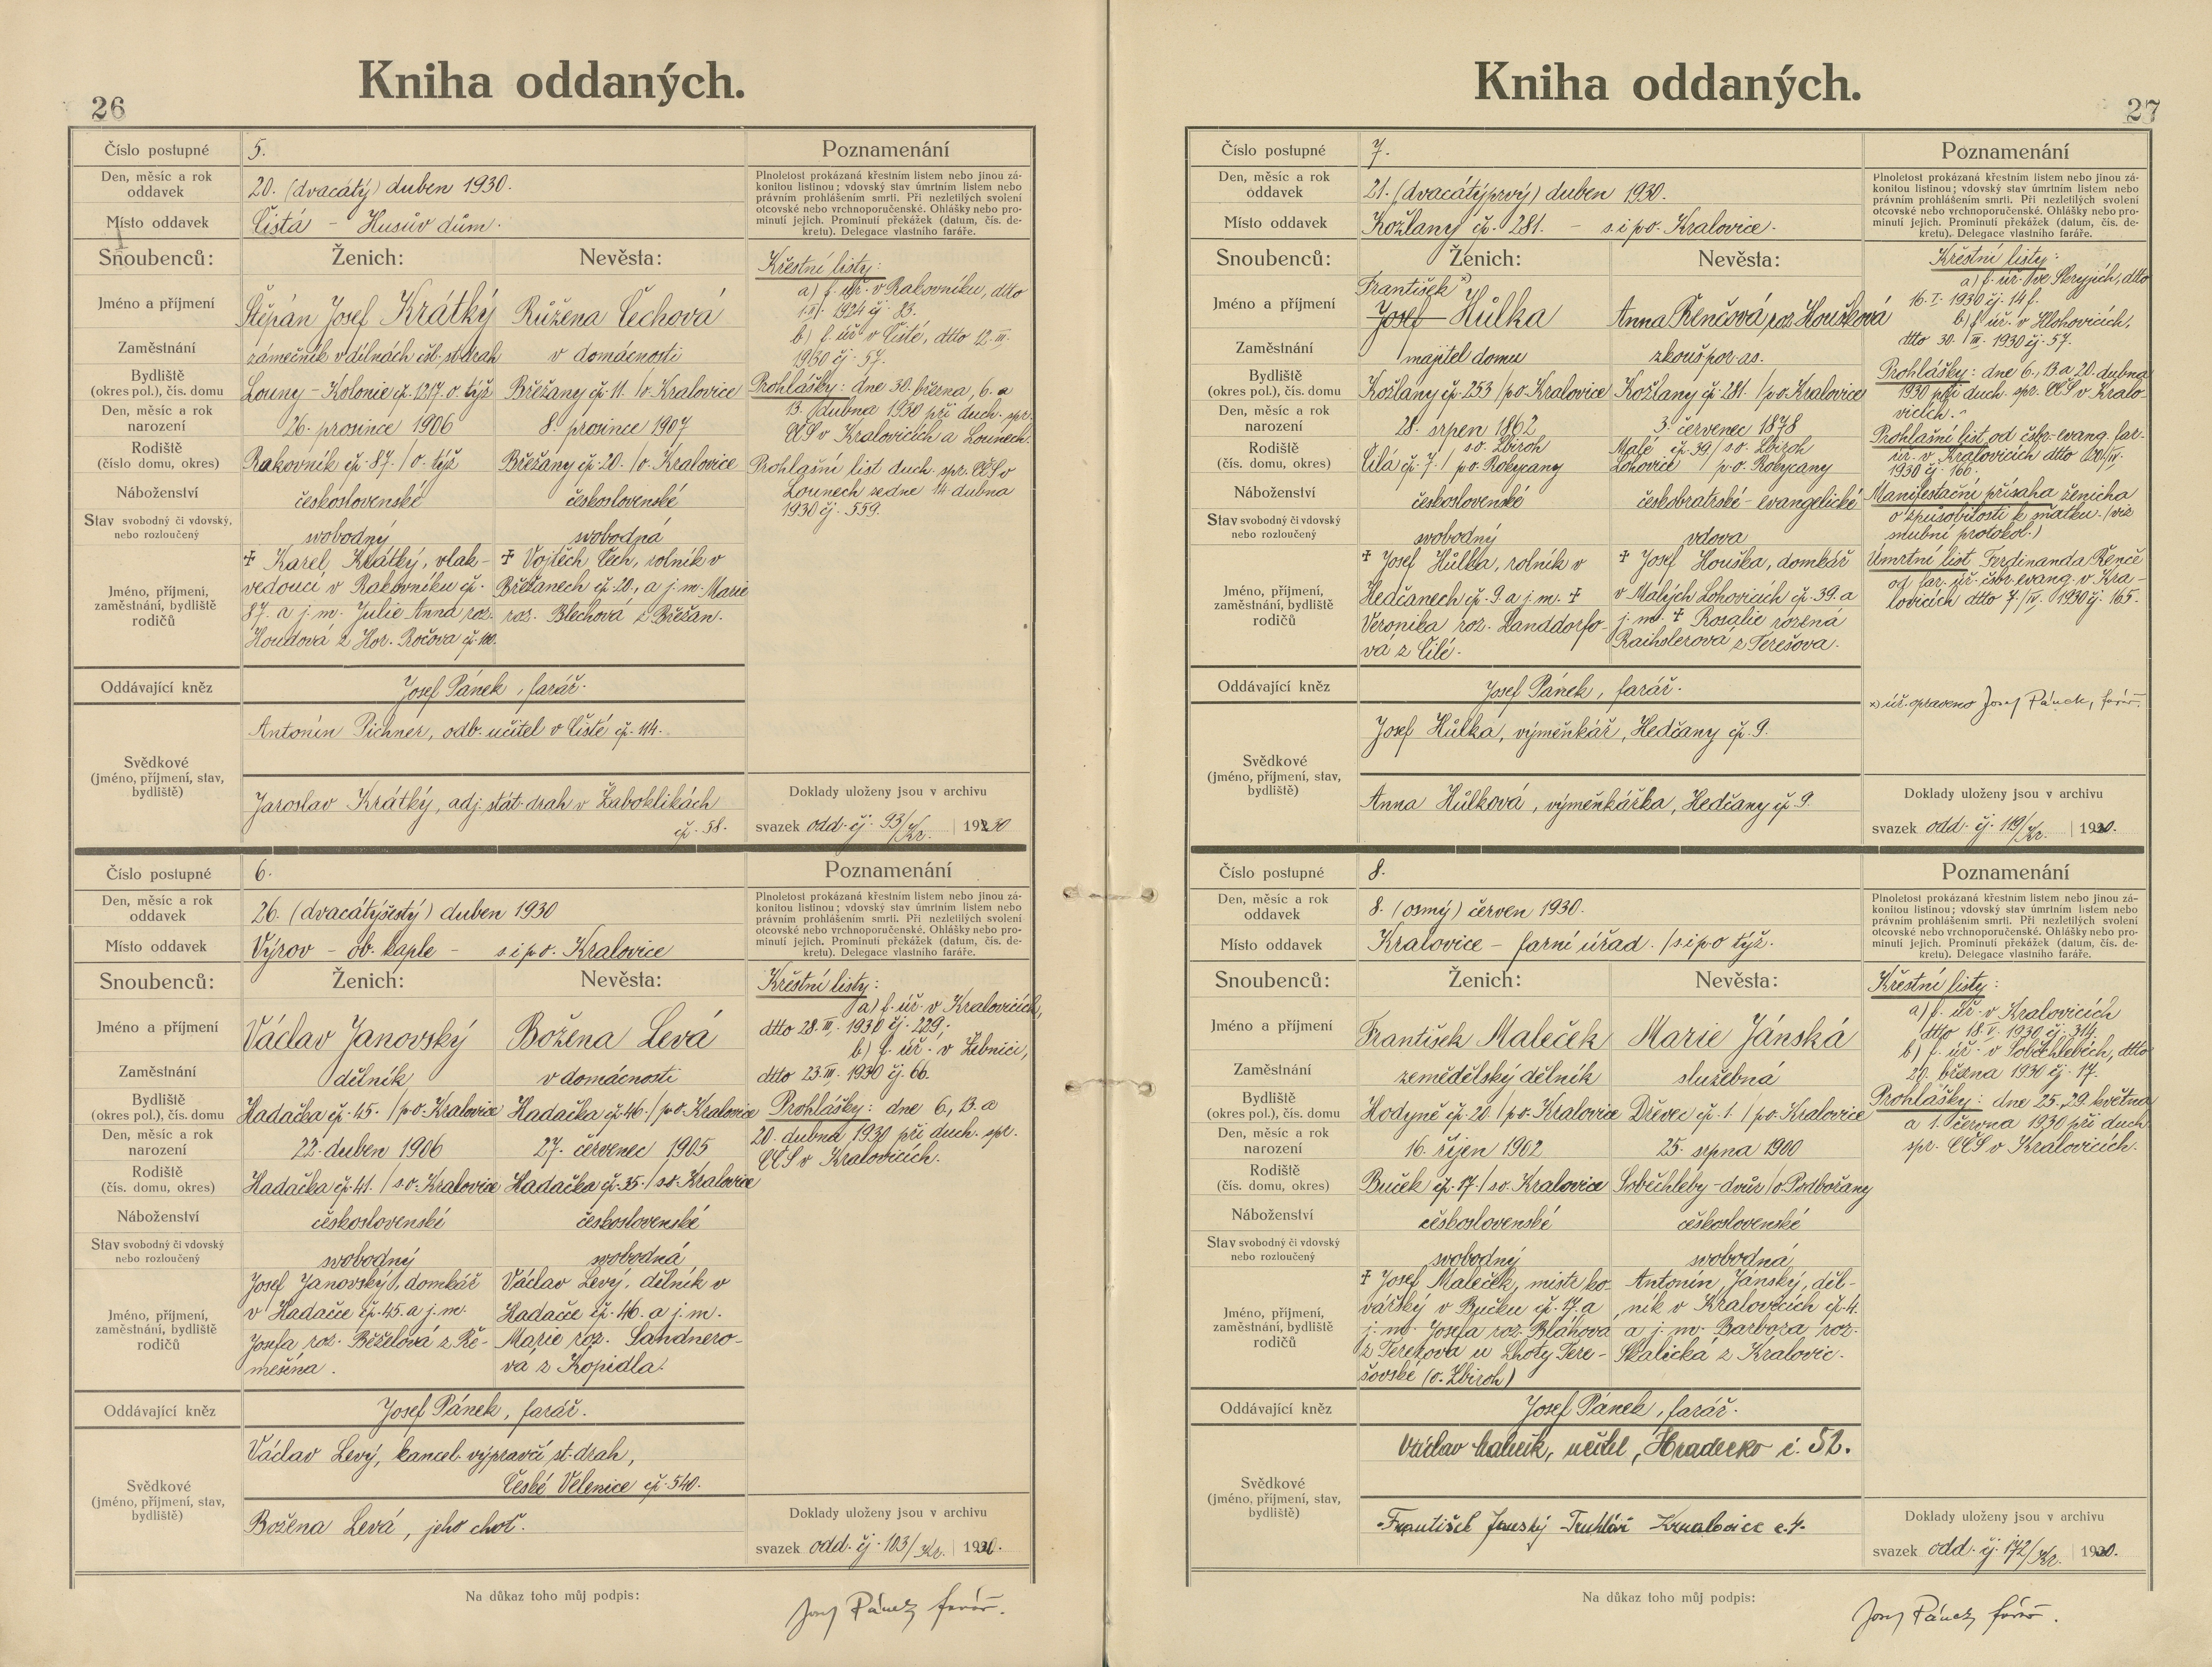 Kniha oddaných.
26
Číslo postupné
5.
Poznamenání
Den, měsíc a rok
oddavek
20. (dvacátý) duben 1930.
Plnoletost prokázaná křestním listem nebo jinou zá-
konitou listinou; vdovský stav úmrtním listem nebo
právním prohlášením smrti. Při nezletilých svolení
otcovské nebo vrchnoporučenské. Ohlášky nebo pro-
minutí jejich. Prominutí překážek (datum, čís. de-
kretu). Delegace vlastního faráře.
Místo oddavek
Čistá - Husův dům.
Snoubenců:
Ženich:
Nevěsta:
Jméno a příjmení
Štěpán Josef Krátký
Růžena Čechová
Zaměstnání
zámečník v dílnách čsl. st. drah
v domácnosti
Bydliště
(okres pol.), čís. domu
Louny - Kolonie čp. 1217. o. týž
Břežany čp. 11. /o. Kralovice
Den, měsíc a rok
narození
26. prosince 1906
8. prosince 1907
Rodiště
(číslo domu, okres)
Rakovník čp. 87. /o. týž
Břežany čp. 20. /o. Kralovice
Náboženství
československé
československé
Stav svobodný či vdovský,
nebo rozloučený
svobodný
svobodná
Jméno, příjmení,
zaměstnání, bydliště
rodičů
✝ Karel Krátký, vlak-
vedoucí v Rakovníku čp.
87. a j. m. Julie Anna roz.
Houdová z Hor. Ročova čp. 100.
✝ Vojtěch Čech, rolník v
Břežanech čp. 20., a j. m. Marie
roz. Blechová z Břežan.
Křestní listy:
a) f. úř. v Rakovníku, dtto
1924 čj. 83.
b) f. úř. v Čisté, dtto 12. III.
1930 čj. 57.
Prohlášky: dne 30. března, 6. a
13. dubna 1930 při duch. spr.
CČS v Kralovicích a Lounech.
Prohlašní list duch. spr. CČS v
Lounech ze dne 14 dubna
1930 čj. 559.
Oddávající kněz
Josef Pánek, farář.
Svědkové
(jméno, příjmení, stav,
bydliště)
Antonín Pichner, odb. učitel v Čisté čp. 114.
Jaroslav Krátký, adj. stát. drah v Žaboklikách
čp. 58.
Doklady uloženy jsou v archivu
svazek odd. čj. 93/Kr. 1930
Číslo postupné
6.
Poznamenání
Den, měsíc a rok
oddavek
26. (dvacátýšestý) duben 1930
Plnoletost prokázaná křestním listem nebo jinou zá-
konitou listinou; vdovský stav úmrtním listem nebo
právním prohlášením smrti. Při nezletilých svolení
otcovské nebo vrchnoporučenské. Ohlášky nebo pro-
minutí jejich. Prominutí překážek (datum, čís. de-
kretu). Delegace vlastního faráře.
Místo oddavek
Výrov - ob. kaple - s. i p. o. Kralovice
Snoubenců:
Ženich:
Nevěsta:
Jméno a příjmení
Václav Janovský
Božena Levá
Zaměstnání
dělník
v domácnosti
Bydliště
(okres pol.), čís. domu
Hadačka čp. 45. /p. o. Kralovice
Hadačka čp. 46. /p. o. Kralovice
Den, měsíc a rok
narození
22. duben 1906
27. červenec 1905
Rodiště
(čís. domu, okres)
Hadačka čp. 41. /s. o. Kralovice
Hadačka čp. 35. /s. o. Kralovice
Náboženství
československé
československé
Stav svobodný či vdovský
nebo rozloučený
svobodný
svobodná
Jméno, příjmení,
zaměstnání, bydliště
rodičů
Josef Janovský, domkář
v Hadačce čp. 45. a j. m.
Josefa roz. Běželová z Ře-
mešína.
Václav Levý, dělník v
Hadačce čp. 46. a j. m.
Marie roz. Sandnero-
vá z Kopidla.
Křestní listy:
a) f. úř. v Kralovicích,
dtto 28. III. 1930 čj. 229;
b) f. úř. v Žebnici,
dtto 23. III. 1930 čj. 66.
Prohlášky: dne 6, 13. a
20. dubna 1930 při duch. spr.
CČS v Kralovicích.
Oddávající kněz
Josef Pánek, farář.
Svědkové
(jméno, příjmení, stav,
bydliště)
Václav Levý, kancel. výpravčí st. drah,
České Velenice čp. 540.
Božena Levá, jeho choť.
Doklady uloženy jsou v archivu
svazek odd. čj. 103/Kr. 1930.
Na důkaz toho můj podpis:
Josef Pánek farář.
Kniha oddaných.
27
Číslo postupné
7.
Poznamenání
Den, měsíc a rok
oddavek
21. (dvacátýprvý) duben 1930.
Plnoletost prokázaná křestním listem nebo jinou zá-
konitou listinou; vdovský stav úmrtním listem nebo
právním prohlášením smrti. Při nezletilých svolení
otcovské nebo vrchnoporučenské. Ohlášky nebo pro-
minutí jejich. Prominutí překážek (datum, čís. de-
kretu). Delegace vlastního faráře.
Místo oddavek
Kožlany čp. 281. - s. i p. o. Kralovice.
Snoubenců:
Ženich:
Nevěsta:
Jméno a příjmení
František x)
Josef Hůlka
Anna Řenčová, roz Houšková
Zaměstnání
majitel domu
zkouš. por. as.
Bydliště
(okres pol.), čís. domu
Kožlany čp. 253 /p. o. Kralovice
Kožlany čp. 281. /p. o. Kralovice
Den, měsíc a rok
narození
28. srpen 1862
3. červenec 1878
Rodiště
(čís. domu, okres)
Čilá čp. 7. / s. o. Zbiroh
p. o. Rokycany
Malé čp. 39 / s. o. Zbiroh
Lohovice / p. o. Rokycany
Náboženství
československé
českobratrské - evangelické
Stav svobodný či vdovský
nebo rozloučený
svobodný
vdova
Jméno, příjmení,
zaměstnání, bydliště
rodičů
✝ Josef Hůlka, rolník v
Hedčanech čp. 9. a j. m. ✝
Veronika roz. Landdorfo-
vá z Čilé.
✝ Josef Houška, domkář
v Malých Lohovicích čp. 39. a
j. m. ✝ Rosalie rozená
Raihslerová z Terešova.
Křestní listy:
a) f. úř. ve Skryjích, dtto
16. I. 1930 čj. 14 f.
b) f. úř. v Hlohovicích,
dtto 30. III. 1930 čj. 57.
Prohlášky: dne 6., 13. a 20. dubna
1930 při duch. spr. CČS v Kralo-
vicích.
Prohlašní list od čsbr. evang. far.
úr. v Kralovicích dtto 20/IV.
1930 čj. 166.
Manifestační přísaha ženicha
o způsobilosti k sňatku. (viz
snubní protokol.)
Úmrtní list Ferdinanda Řenče
od far. úř. čsbr. evang. v Kra-
lovicích dtto 7/IV. 1930 čj. 165.
Oddávající kněz
Josef Pánek, farář.
x) úř. opraveno Josef Pánek, farář.
Svědkové
(jméno, příjmení, stav,
bydliště)
Josef Hůlka, výměnkář, Hedčany čp. 9.
Anna Hůlková, výměnkářka, Hedčany čp 9.
Doklady uloženy jsou v archivu
svazek odd. čj. 119/Kr. 1930.
Číslo postupné
8.
Poznamenání
Den, měsíc a rok
oddavek
8. (osmý) červen 1930.
Plnoletost prokázaná křestním listem nebo jinou zá-
konitou listinou; vdovský stav úmrtním listem nebo
právním prohlášením smrti. Při nezletilých svolení
otcovské nebo vrchnoporučenské. Ohlášky nebo pro-
minutí jejich. Prominutí překážek (datum, čís. de-
kretu). Delegace vlastního faráře.
Místo oddavek
Kralovice - farní úřad. /s. i p. o týž.
Snoubenců:
Ženich:
Nevěsta:
Jméno a příjmení
František Maleček
Marie Jánská
Zaměstnání
zemědělský dělník
služebná
Bydliště
(okres pol.), čís. domu
Hodyně čp. 20. /p. o. Kralovice
Dřevec čp. 1. /p. o. Kralovice
Den, měsíc a rok
narození
16. říjen 1902
25. srpna 1900
Rodiště
(čís. domu, okres)
Buček čp. 17. /s. o. Kralovice
Soběchleby - dvůr /o. Podbořany
Náboženství
československé
československé
Stav svobodný či vdovský
nebo rozloučený
svobodný
svobodná
Jméno, příjmení,
zaměstnání, bydliště
rodičů
✝ Josef Maleček, mistr ko-
vářský v Bučku čp. 17. a
j. m. Josefa roz. Bláhová
z Terešova u Lhoty Tere-
šovské (o. Zbiroh)
Antonín Jánský, děl-
ník v Kralovicích čp. 4.
a j. m. Barbora roz.
Skalická z Kralovic.
Křestní listy:
a) f. úř. v Kralovicích
dtto 18. V. 1930 čj. 314.
b) f. úř. v Soběchlebích, dtto
20. března 1930 čj. 17.
Prohlášky: dne 25., 29. května
a 1. června 1930 při duch.
spr. CČS v Kralovicích.
Oddávající kněz
Josef Pánek, farář.
Svědkové
(jméno, příjmení, stav,
bydliště)
Václav Maleček, učitel, Hradecko č. 52.
František Janský Truhlář Kralovice č. 4.
Doklady uloženy jsou v archivu
svazek odd. čj. 172/Kr. 1930.
Na důkaz toho můj podpis:
Josef Pánek farář.